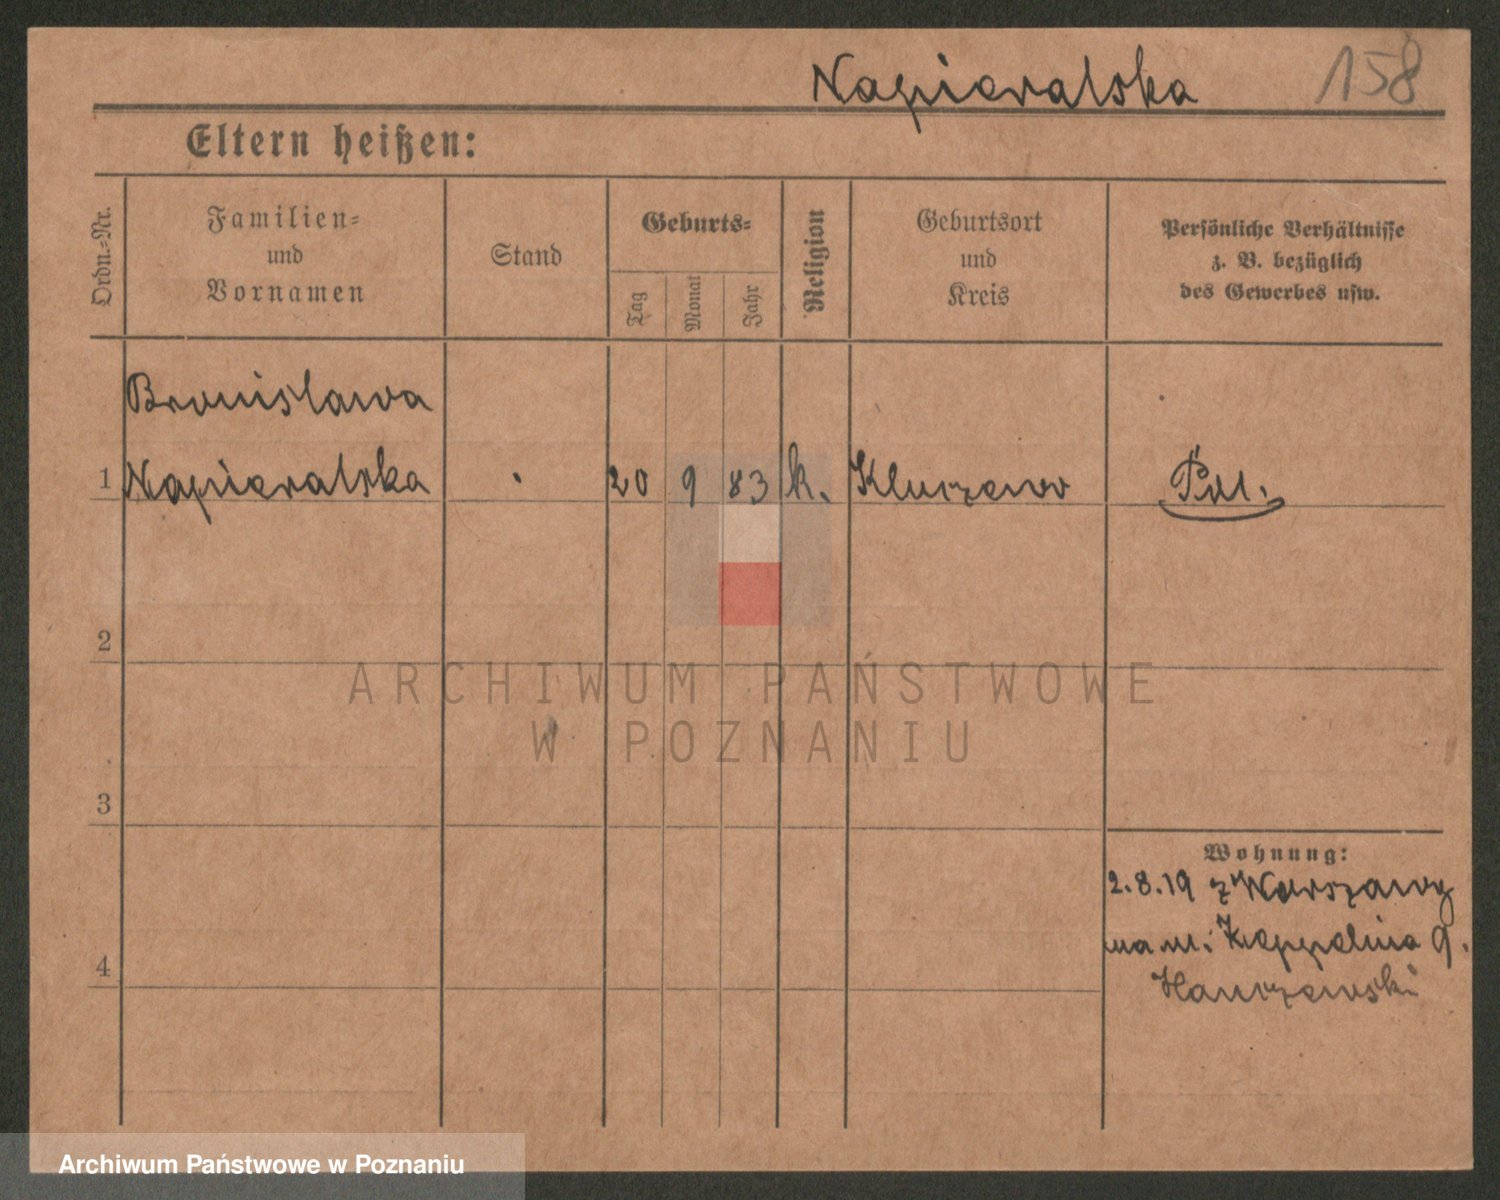 Napieralska 158
Eltern heißen:
Ordn.=Nr.
Familien=
und
Vornamen
Stand
Geburts=
Tag
Monat
Jahr
Religion
Geburtsort
und
Kreis
Persönliche Verhältnisse
z. B. bezüglich
des Gewerbes usw.
Bronislawa
1 Napieralska 20 9 83 k. Kluczewo
2
ARCHIWUM PAŃSTWOWE
W POZNANIU
3
Wohnung:
2.8.19 z Warszawy
na ul: Zeppelina 9.
4
Archiwum Państwowe w Poznaniu